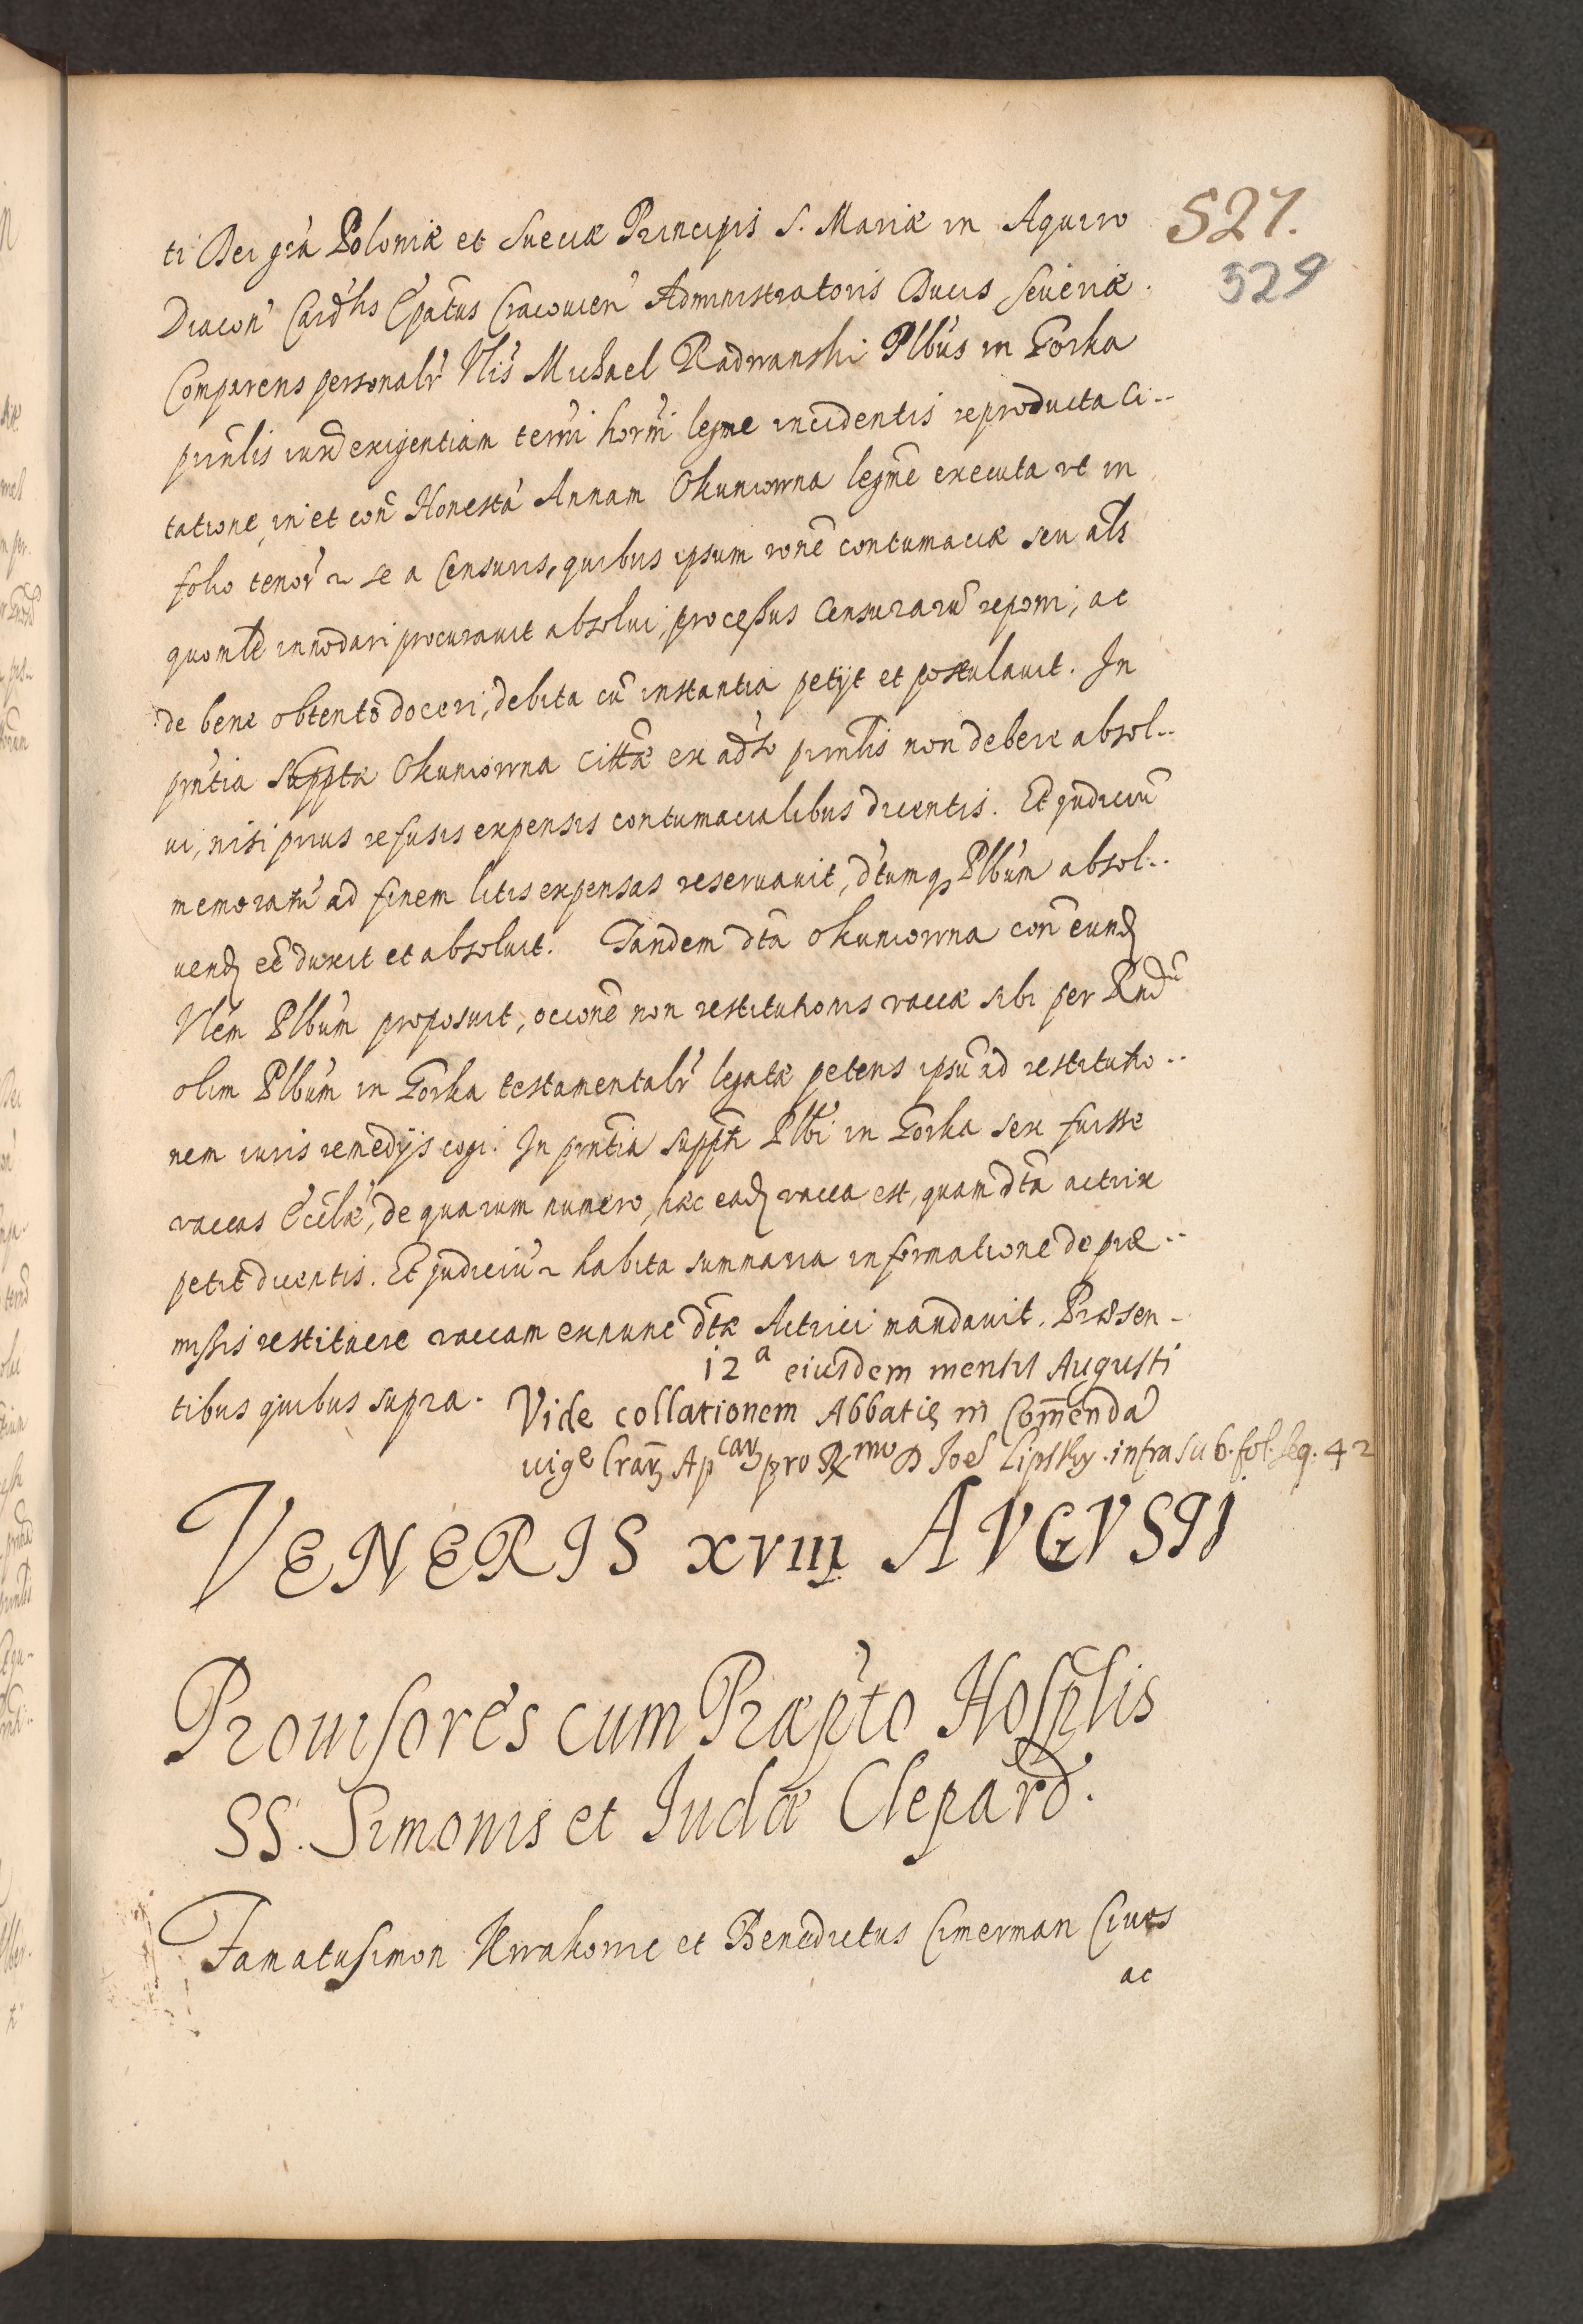 527.
529
ti Dei grã Poloniæ et Sueciæ Principis S. Mariæ in Aquiro
Diacon' Card'lis Ep̃atus Cracouien' Administratoris Ducis Seueriæ.
Comparens personalr' Vlis' Michael Radwanski Plb'us in Gorka
prin̄lis iux̄ exigentiam term̃i horn̄i legme incidentis reproducta Ci--
tatione, in et con̄ Honestã Annam Okuniowna legm̄e executa ut in
folio tenor' se a Censuris, quibus ipsum rōne contumaciæ seu al̃s
quom̃lt innodari procurauit absolui, processus Censurarũ reponi, ac
de bene obtento doceri, debita cũ instantia petijt et postulauit. In
prñtia supptæ Okuniowna Cittæ ex ad'so prin̄lis non debere absol--
ui, nisi prius refusis expensis contumacialibus dicentis. Et judiciũ
memoratũ ad finem litis expensas reseruauit, d'tumq₃ Plb'um absol--
uend₎ eē duxit et absoluit. Tandem dtā Okuniowna con̄ eund₎
Vlem Plb'um proposuit, occōne non restitutionis vaccæ sibi per Rndũ
olim Plb'um in Gorka testamentalr' legatæ petens ipsũ ad restitutio--
nem iuris remedijs cogi. In prñtia suppti Plb'i in Gorka sex fuisse
vaccas Eccl'æ, de quarum numero, hæc ead₎ vacca est, quam dtā actrix
petit dicentis. Et judiciũ habita summaria informatione de præ--
missis restituere vaccam exnunc dtæ Actrici mandauit. Præsen-
tibus quibus supra.
12ᵃ eiusdem mensis Augusti
Vide collationem Abbatiæ in Com̄endã
uigᵉ lraȝ Apᶜᵃȝ pro Rᵐᵒ D Joeˢ Lipsky. infra sub. fol. seq. 42
VENERIS XVIII AVGVSTI
Prouisores cum Præp'to Hosp̃lis
SS. Simonis et Iudæ Clepard.
Famatusimon Kwakowic et Benedictus Cimerman Ciues
ac